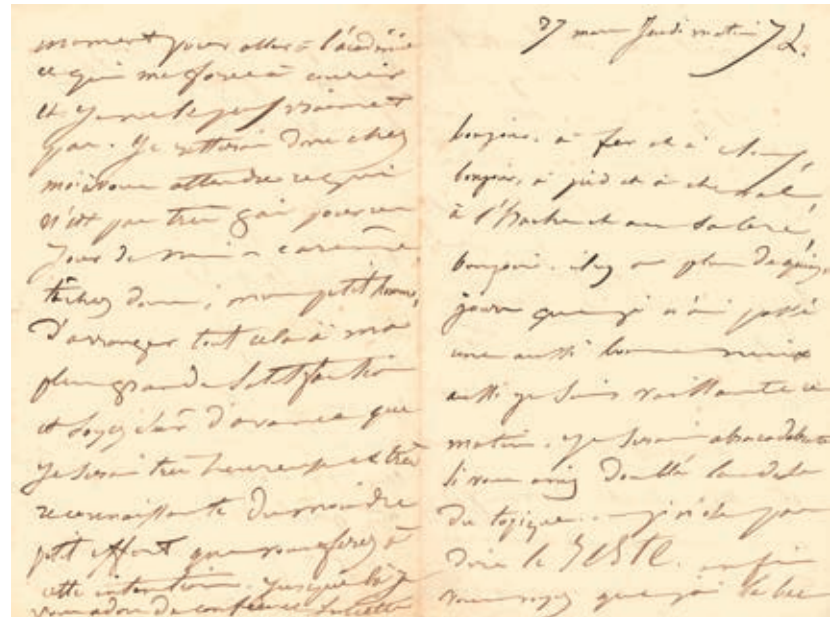 27 mars Jeudi matin 7 h.
bonjour, à fer et à clous,
bonjour, à pied et à cheval
à et au
bonjour. il y a plus de quinze
jours que je n'ai passé
une aussi bonne nuit
aussi je suis vaillante ce
matin. Je serais abracadabrante
si vous aviez doublé la dose
du topique. je n'ose pas
dire le GESTE. enfin
vous voyez que j'ai le bec
moment pour aller à l'académie
ce qui me force à courir
et je ne le peux vraiment
pas. Je resterai donc chez
moi à vous attendre ce qui
n'est pas très gai pour un
jour de mi-carême
tâchez donc, mon petit homme,
d'arranger tout cela à ma
plus grande satisfaction
et soyez sûr d'avance que
je serai très heureuse et très
reconnaissante du moindre
petit effort que vous ferez à
cette intention. Jusque là je
vous adore de confiance Juliette